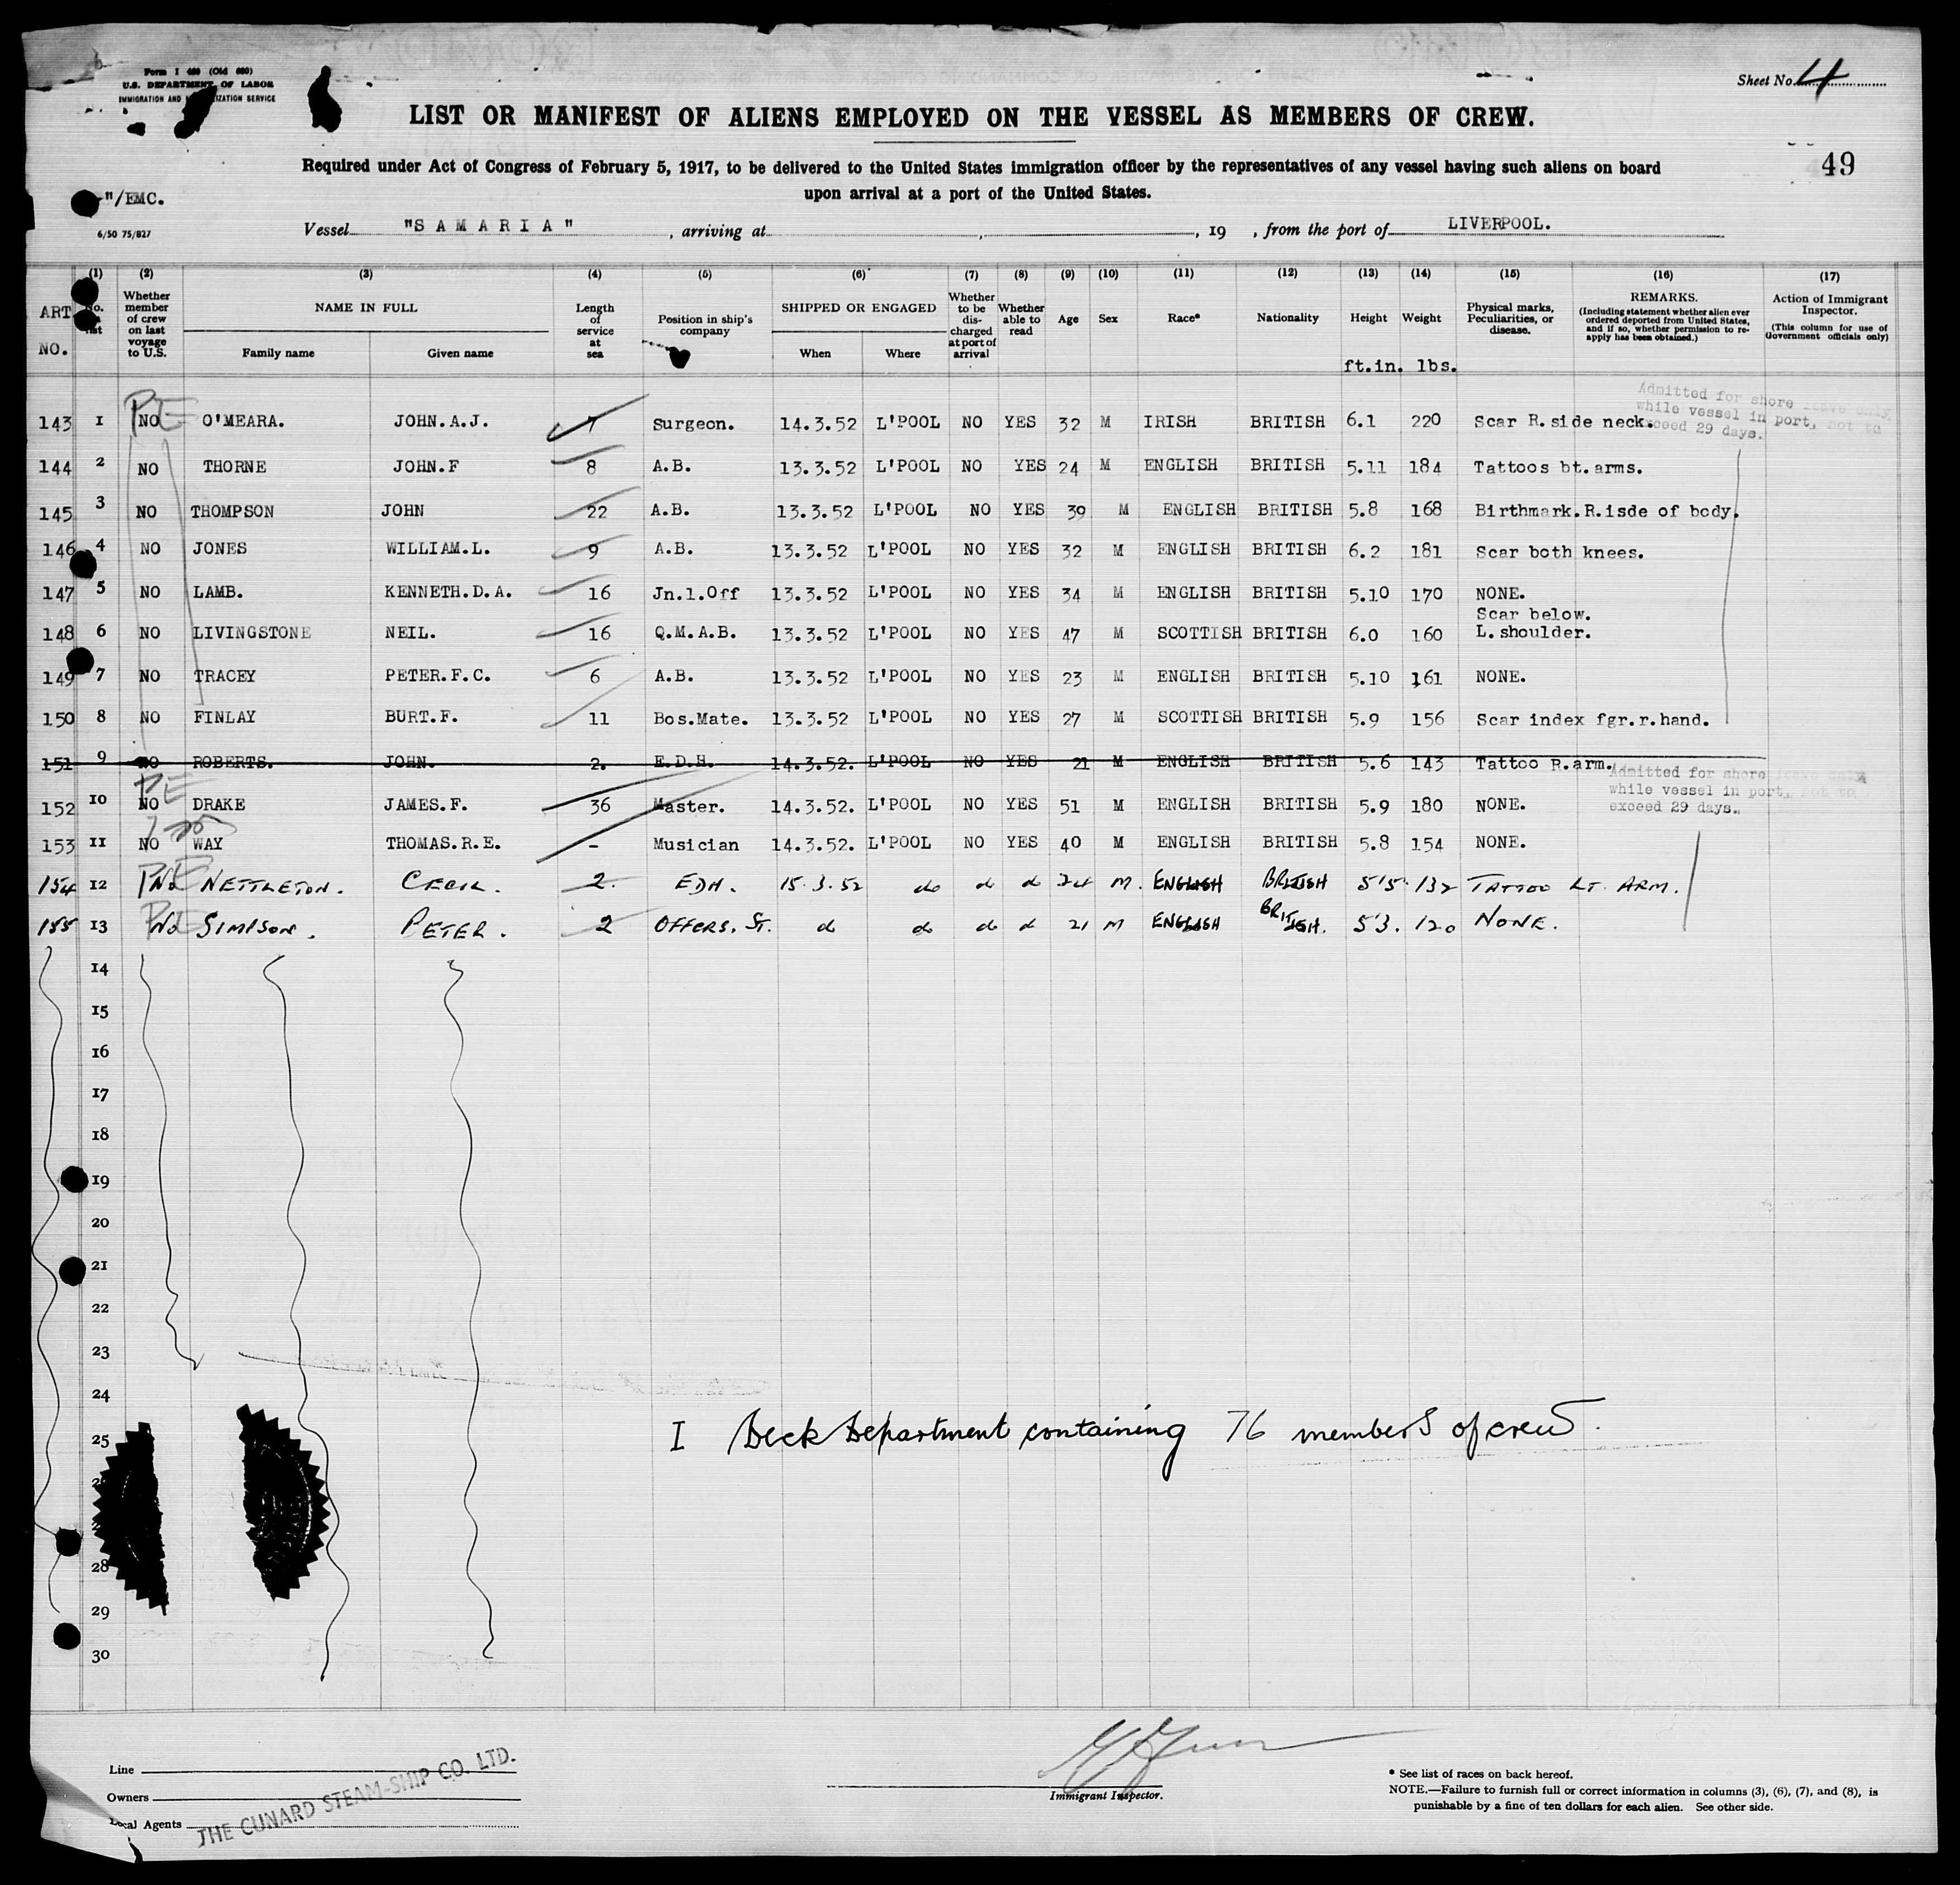 Form I 480 (Old 680)
U.S. DEPARTMENT OF LABOR
IMMIGRATION AND SERVICE
Sheet No. 4
LIST OR MANIFEST OF ALIENS EMPLOYED ON THE VESSEL AS MEMBERS OF CREW.
Required under Act of Congress of February 5, 1917, to be delivered to the United States immigration officer by the representatives of any vessel having such aliens on board
upon arrival at a port of the United States.
49
"/EMC.
6/50 75/827
Vessel "S A M A R I A" , arriving at , , 19 , from the port of LIVERPOOL.
(1) (2) (3) (4) (5) (6) (7) (8) (9) (10) (11) (12) (13) (14) (15) (16) (17)
ART NO. No. Whether member of crew on last voyage to U.S. NAME IN FULL Family name Given name Length of service at sea Position in ship's company SHIPPED OR ENGAGED When Where Whether to be discharged at port of arrival Whether able to read Age Sex Race* Nationality Height Weight Physical marks, Peculiarities, or disease. REMARKS. (Including statement whether alien ever ordered deported from United States, and if so, whether permission to re-apply has been obtained.) Action of Immigrant Inspector. (This column for use of Government officials only)
ft.in. lbs.
Admitted for shore leave only
while vessel in port, not to
exceed 29 days.
143 1 NO O'MEARA. JOHN.A.J. 7 Surgeon. 14.3.52 L'POOL NO YES 32 M IRISH BRITISH 6.1 220 Scar R.side neck.
144 2 NO THORNE JOHN.F 8 A.B. 13.3.52 L'POOL NO YES 24 M ENGLISH BRITISH 5.11 184 Tattoos bt.arms.
145 3 NO THOMPSON JOHN 22 A.B. 13.3.52 L'POOL NO YES 39 M ENGLISH BRITISH 5.8 168 Birthmark.R.isde of body.
146 4 NO JONES WILLIAM.L. 9 A.B. 13.3.52 L'POOL NO YES 32 M ENGLISH BRITISH 6.2 181 Scar both knees.
147 5 NO LAMB. KENNETH.D.A. 16 Jn.1.Off 13.3.52 L'POOL NO YES 34 M ENGLISH BRITISH 5.10 170 NONE.
148 6 NO LIVINGSTONE NEIL. 16 Q.M.A.B. 13.3.52 L'POOL NO YES 47 M SCOTTISH BRITISH 6.0 160 Scar below. L.shoulder.
149 7 NO TRACEY PETER.F.C. 6 A.B. 13.3.52 L'POOL NO YES 23 M ENGLISH BRITISH 5.10 161 NONE.
150 8 NO FINLAY BURT.F. 11 Bos.Mate. 13.3.52 L'POOL NO YES 27 M SCOTTISH BRITISH 5.9 156 Scar index fgr.r.hand.
151 9 NO ROBERTS. JOHN. 2. E.D.H. 14.3.52. L'POOL NO YES 21 M ENGLISH BRITISH 5.6 143 Tattoo R.arm.
Admitted for shore leave only
while vessel in port, not to
exceed 29 days.
152 10 NO DRAKE JAMES.F. 36 Master. 14.3.52. L'POOL NO YES 51 M ENGLISH BRITISH 5.9 180 NONE.
153 11 NO WAY THOMAS.R.E. - Musician 14.3.52. L'POOL NO YES 40 M ENGLISH BRITISH 5.8 154 NONE.
154 12 No NETTLETON. CECIL. 2. EDH. 15.3.52 do d d 24 M. ENGLISH BRITISH 5'5. 132 TATTOO LT. ARM.
155 13 No SIMPSON. PETER. 2 OFFERS. ST. d do d d 21 M ENGLISH BRITISH. 5'3. 120 NONE.
14
15
16
17
18
19
20
21
22
23
24
25
28
29
30
I Deck Department containing 76 members of crew.
Line
Owners
Local Agents
THE CUNARD STEAM-SHIP CO. LTD.
Immigrant Inspector.
* See list of races on back hereof.
NOTE.—Failure to furnish full or correct information in columns (3), (6), (7), and (8), is
punishable by a fine of ten dollars for each alien. See other side.